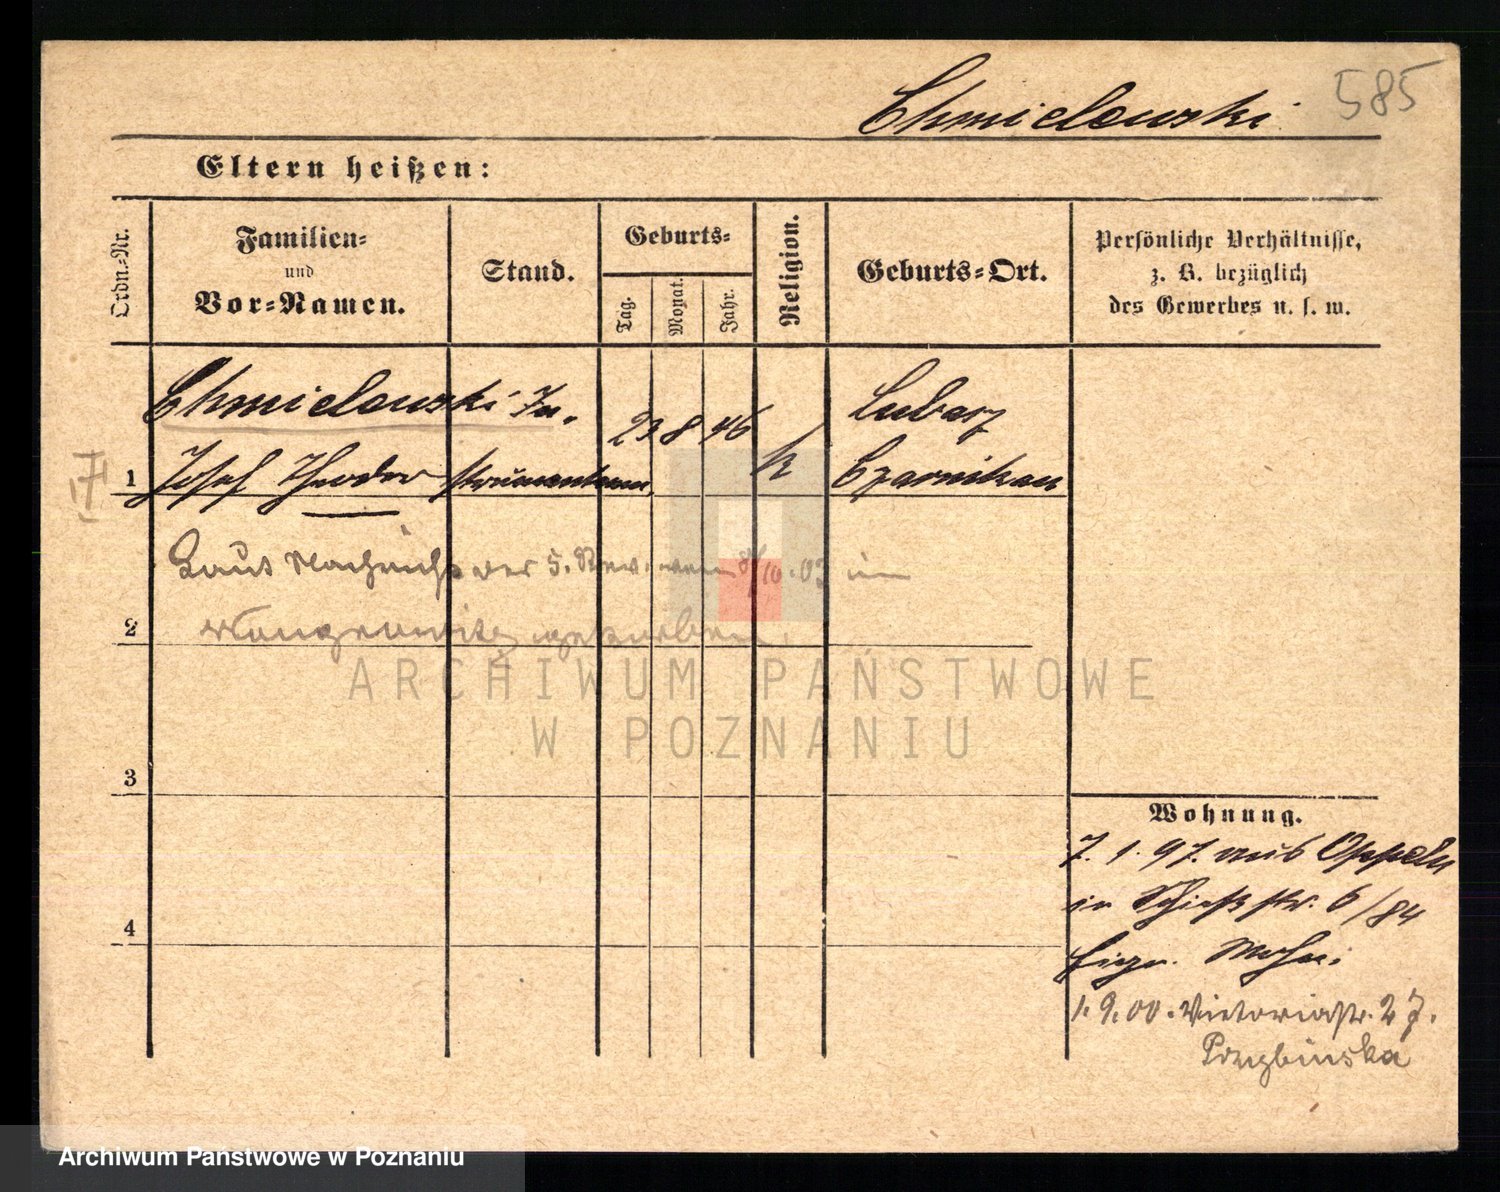 585
Chmielewski
Eltern heißen:
Ordn.-Nr.
Familien-
und
Vor-Namen.
Stand.
Geburts-
Tag.
Monat.
Jahr.
Religion.
Geburts-Ort.
Persönliche Verhältnisse,
z. B. bezüglich
des Gewerbes u. s. w.
Chmielewski
23 8 46
Lubasz
1 Josef Theodor
k
Czarnikau
Laut Nachricht des 5. Rev. vom 8/10.03 in
2
gestorben.
ARCHIWUM PAŃSTWOWE
W POZNANIU
3
4
Wohnung.
7. 1. 97. aus Oppeln
in Schießstr. 6/84
1. 9. 00. Victoriastr. 27.
Przybinska
Archiwum Państwowe w Poznaniu